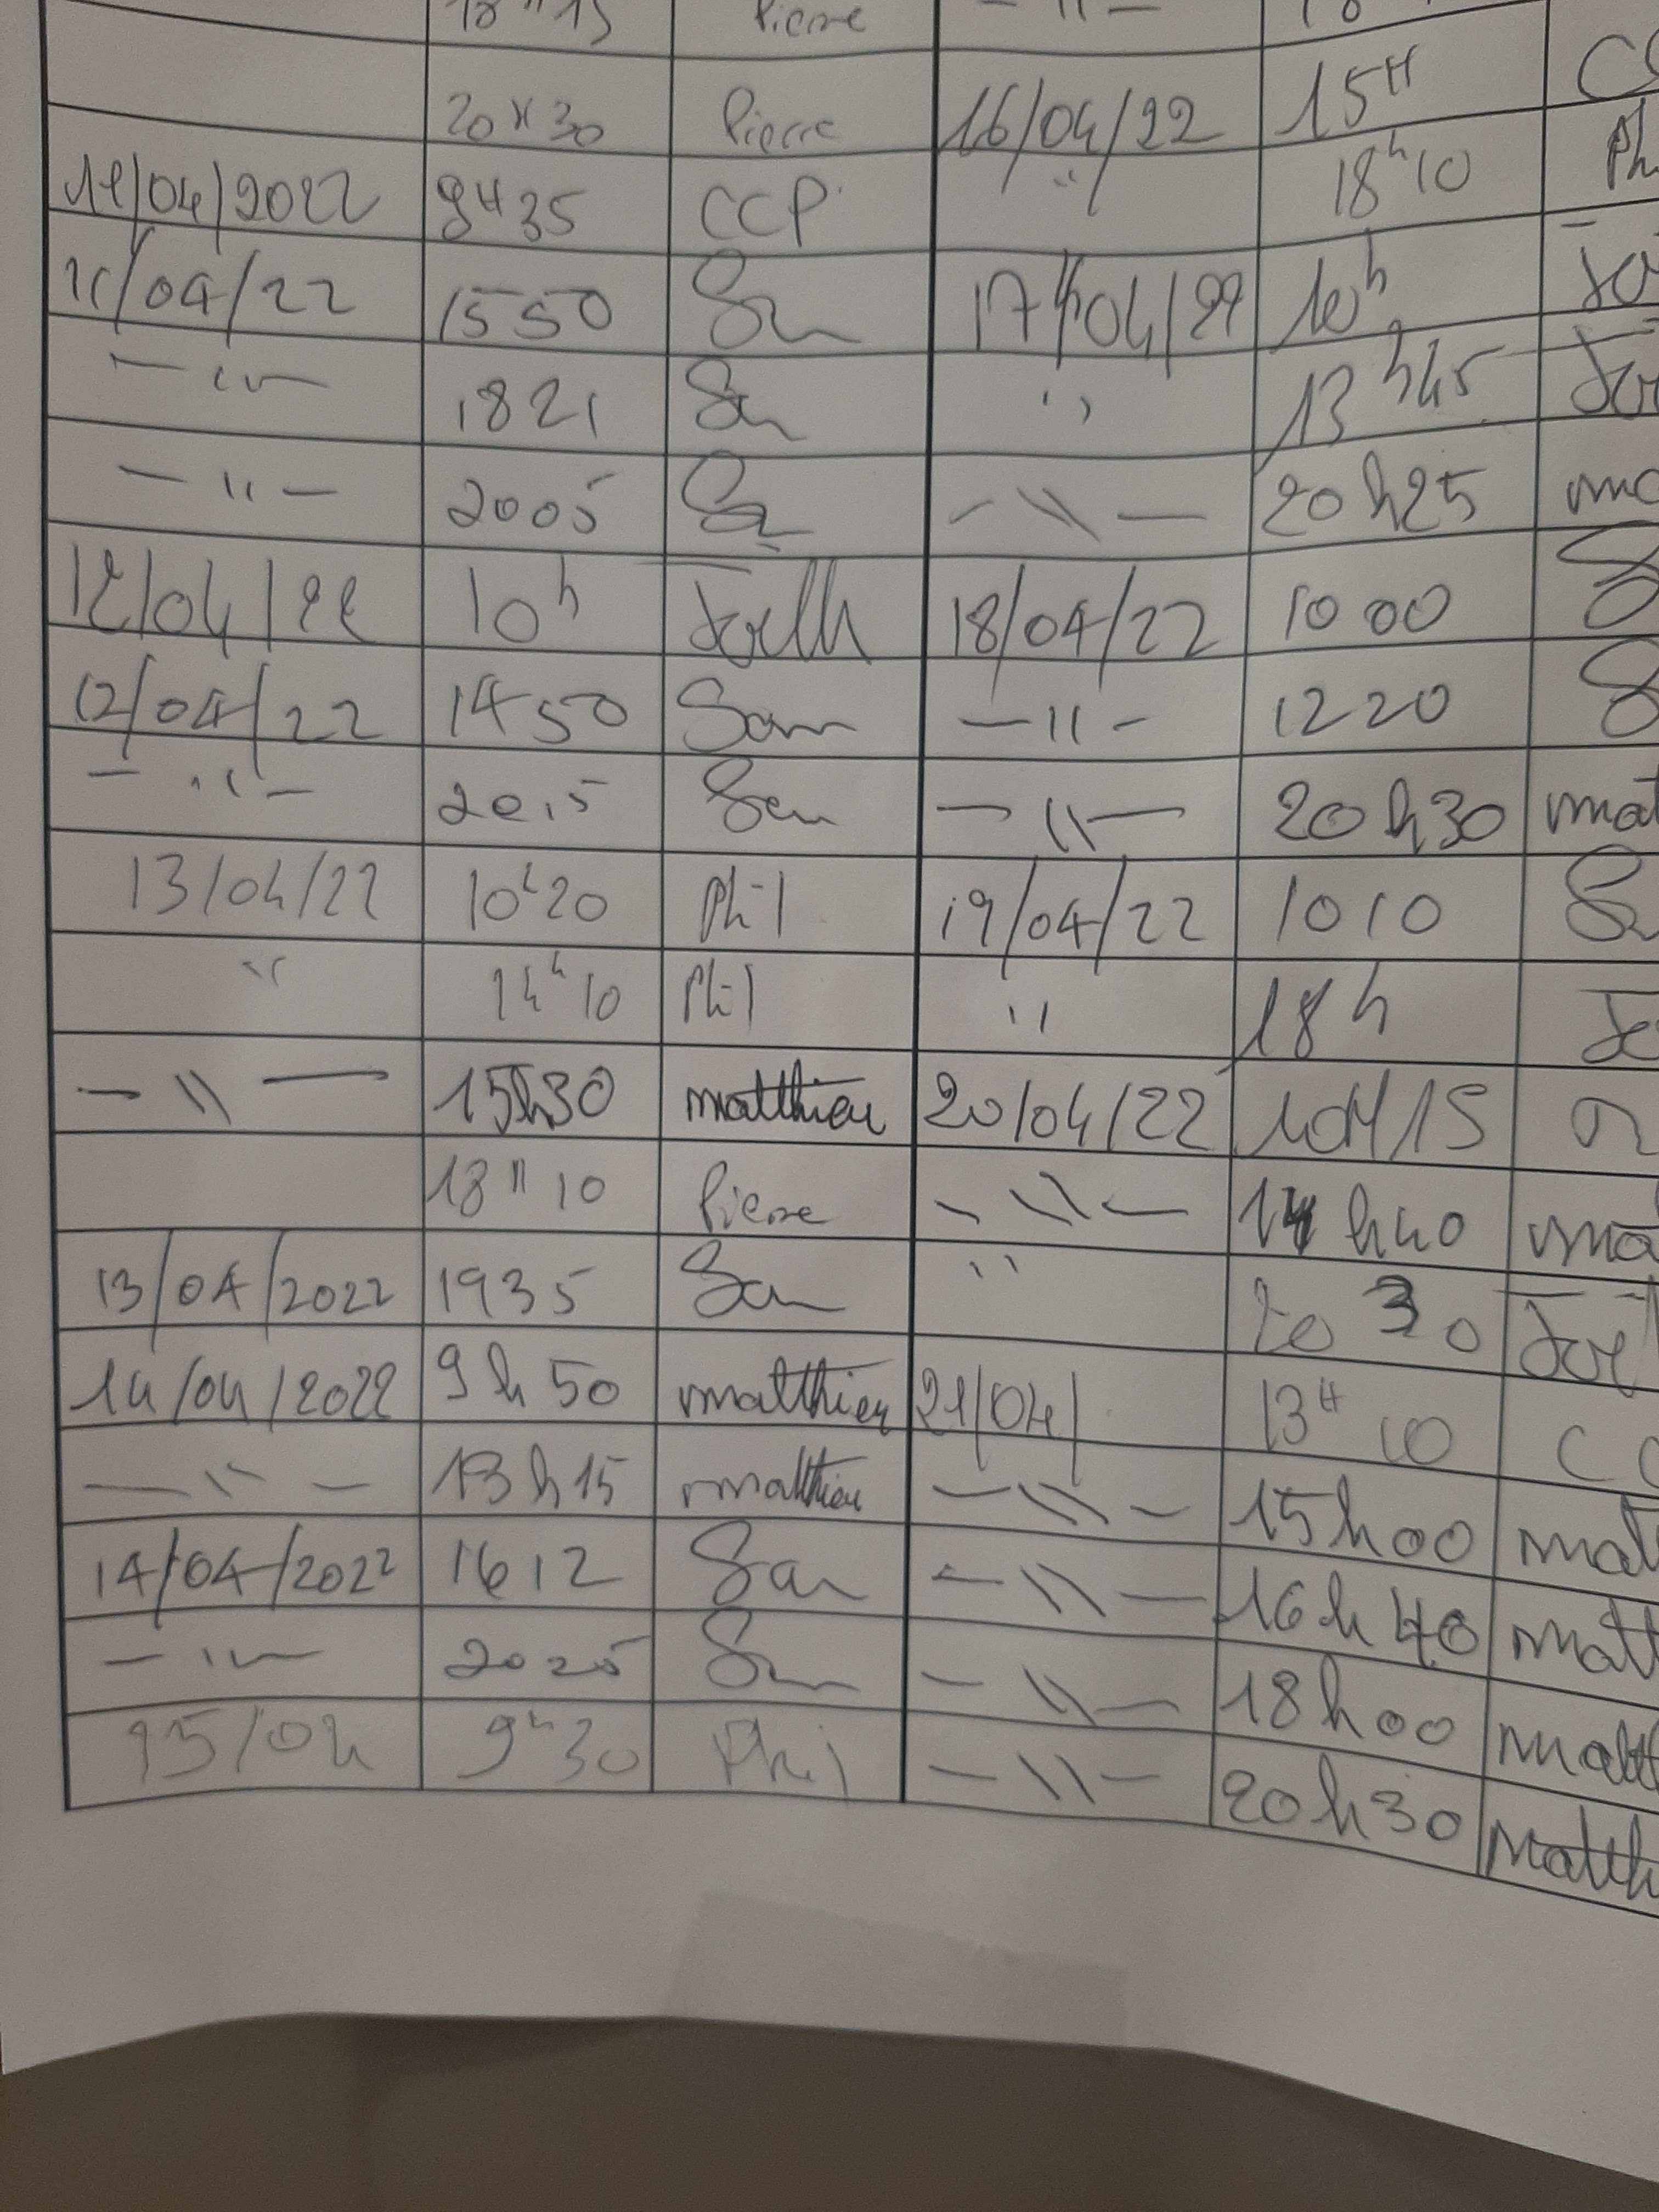 Pierre - 11 -
20H30 Pierre 16/04/22 15H
11/04/2022 9H35 CCP " 18h10 Ph
11/04/22 1550 Sam 17/04/22 10h Jo
- 11 - 1821 Sam " 13h45 Joë
- 11 - 2005 Sam - \\ - 20h25 ma
12/04/22 10h Joëlh 18/04/22 1000 S
12/04/22 1450 Sam - 11 - 1220 S
- 11 - 2015 Sam - \\ - 20h30 mat
13/04/22 10h20 Phil 19/04/22 1010 Sa
" 14h10 Phil " 18h Jo
- \\ - 15h30 matthieu 20/04/22 10H15
18H10 Pierre - \\ - 14h40 ma
13/04/2022 1935 Sam " 20 30 Joël
14/04/2022 9h50 matthieu 21/04/ 13H10 CC
- \\ - 13h15 matthieu - \\ - 15h00 mat
14/04/2022 1612 Sam - \\ - 16h40 matt
- 11 - 2025 Sam - \\ - 18h00 matt
15/04 9h30 Phil - \\ - 20h30 Matth